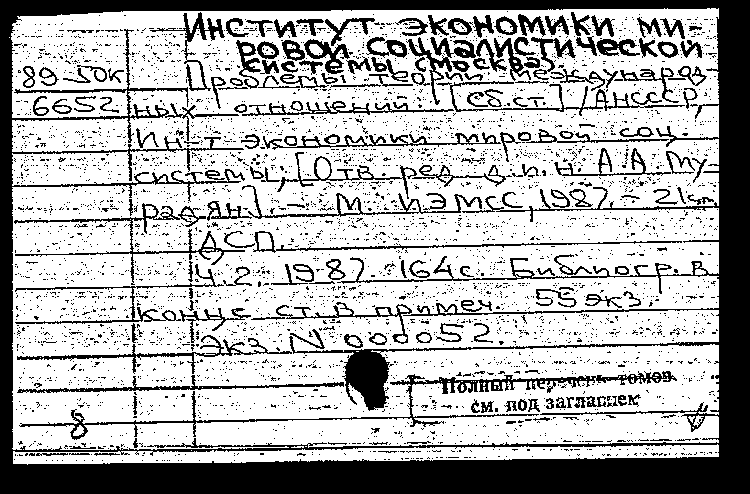 Институт экономики ми-
ровой социалистической
системы (Москва).
89-50к Проблемы теории международ-
6652 ных отношений: [Сб.ст.] / АН СССР,
Ин-т экономики мировой соц.
системы; [Отв. ред. д.и.н. А.А. Му-
радян]. - М. ИЭМСС, 1987. - 21 см.
ДСП.
Ч.2. 1987. 164с. Библиогр. в
конце ст. в примеч. 55 экз.
Экз. N 000052.
Полный перечень томов
см. под заглавием
8